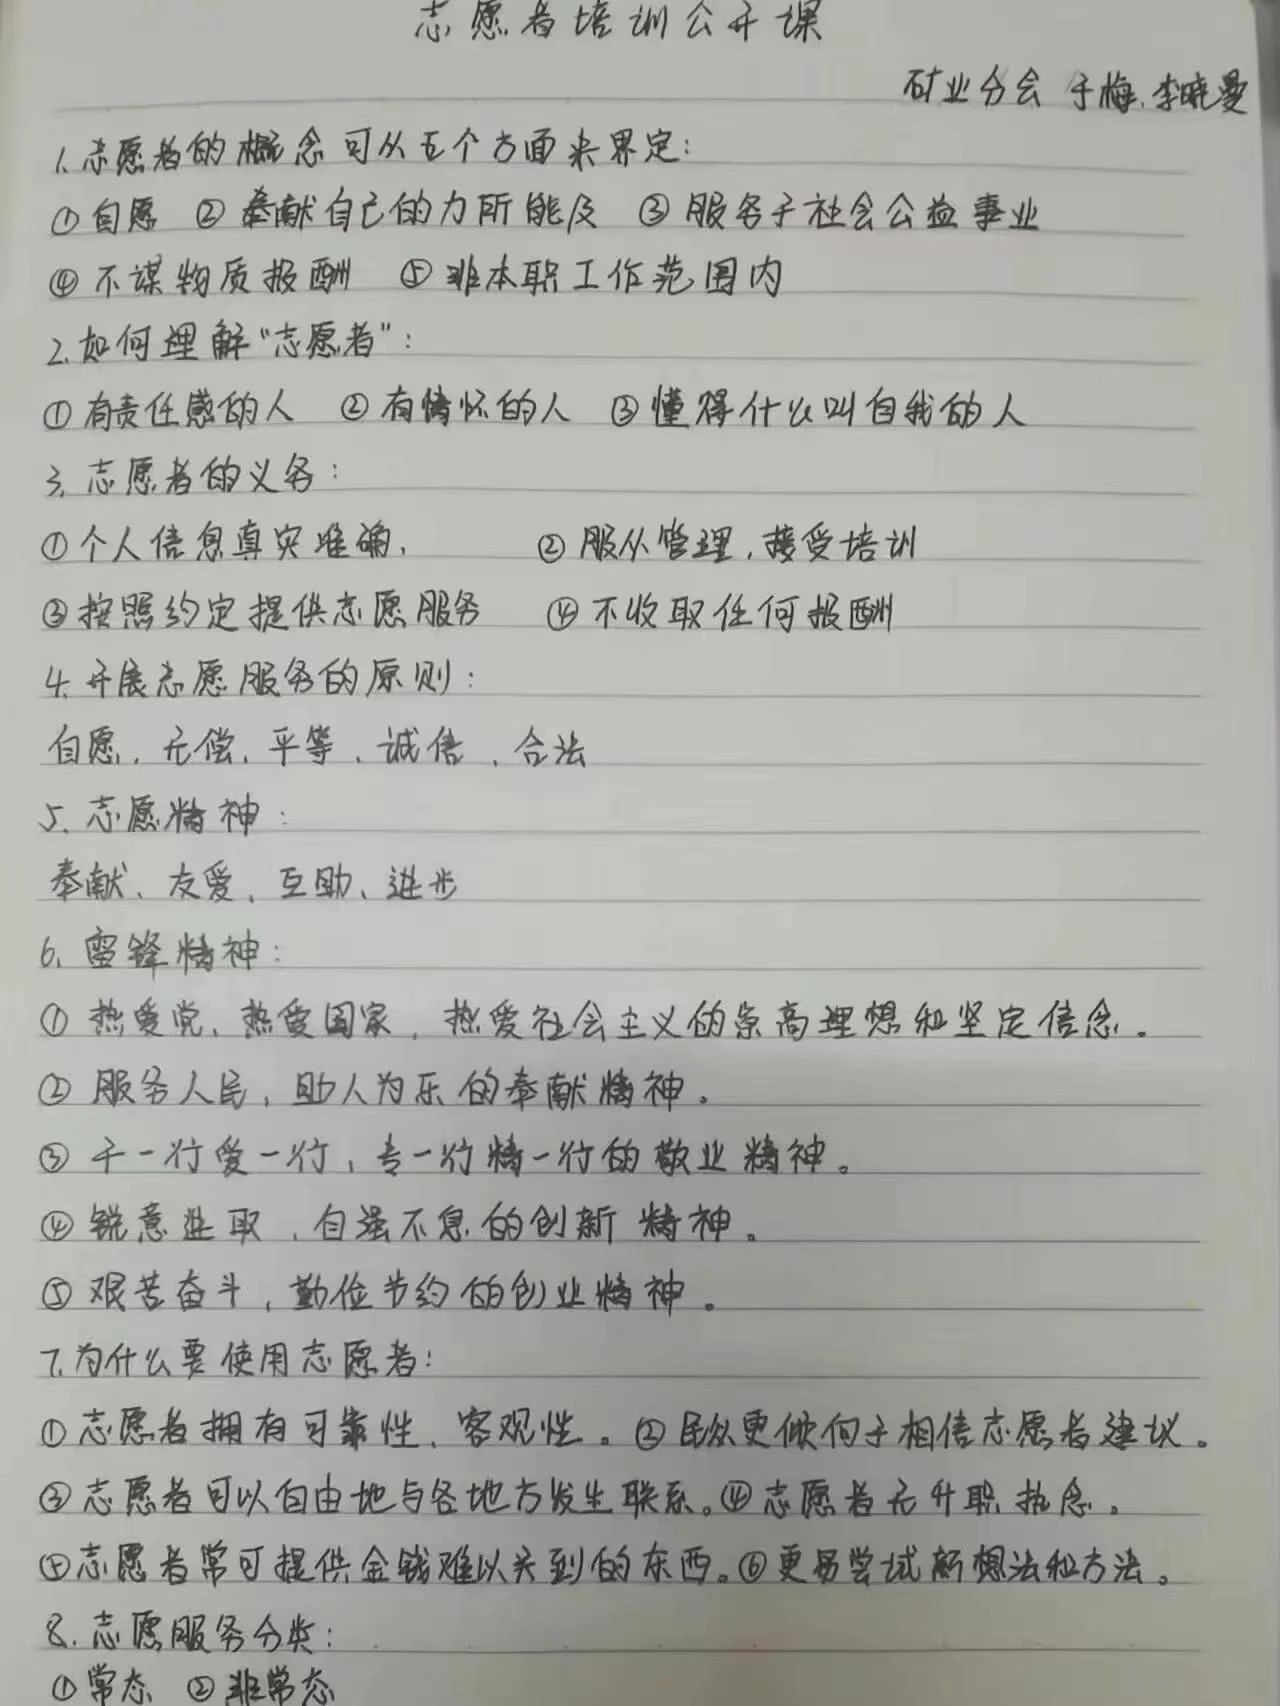 志愿者培训公开课
矿业分会 于梅、李晓曼
1、志愿者的概念可从五个方面来界定：
①自愿 ②奉献自己的力所能及 ③服务于社会公益事业
④不谋物质报酬 ⑤非本职工作范围内
2、如何理解“志愿者”：
①有责任感的人 ②有情怀的人 ③懂得什么叫自我的人
3、志愿者的义务：
①个人信息真实准确、 ②服从管理、接受培训
③按照约定提供志愿服务 ④不收取任何报酬
4、开展志愿服务的原则：
自愿、无偿、平等、诚信、合法
5、志愿精神：
奉献、友爱、互助、进步
6、雷锋精神：
①热爱党、热爱国家，热爱社会主义的崇高理想和坚定信念。
②服务人民，助人为乐的奉献精神。
③干一行爱一行，专一行精一行的敬业精神。
④锐意进取，自强不息的创新精神。
⑤艰苦奋斗，勤俭节约的创业精神。
7、为什么要使用志愿者：
①志愿者拥有可靠性、客观性。②民众更倾向于相信志愿者建议。
③志愿者可以自由地与各地方发生联系。④志愿者无升职执念。
⑤志愿者常可提供金钱难以买到的东西。⑥更易尝试新想法和方法。
8、志愿服务分类：
①常态 ②非常态